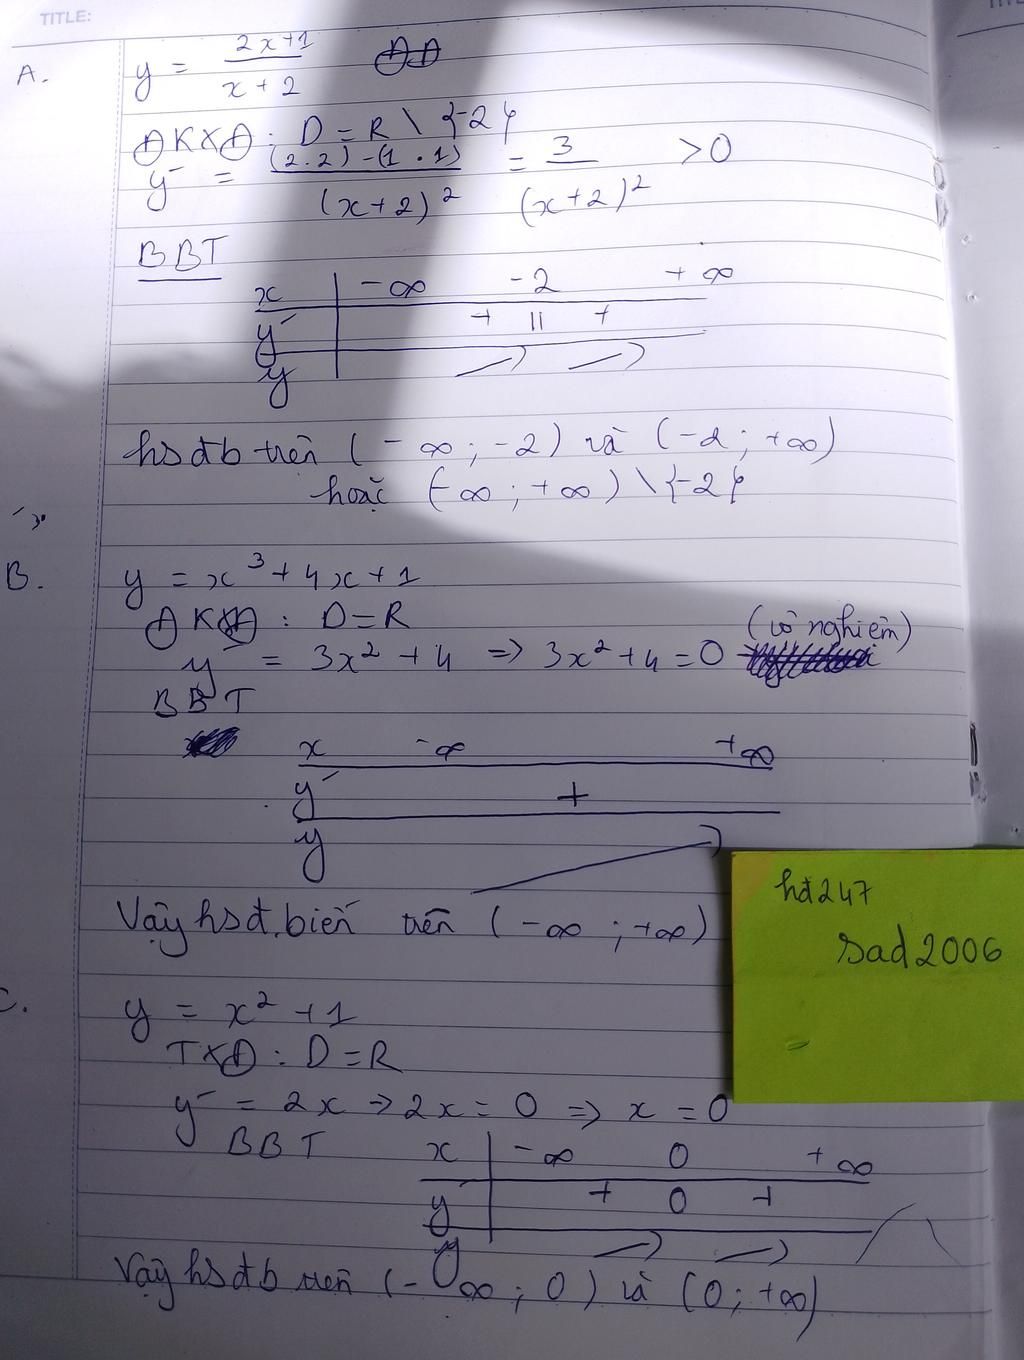 TITLE:
A. y = (2x+1)/(x+2)
ĐKXĐ: D = R \ {-2}
y' = ((2.2) - (1.1))/(x+2)² = 3/(x+2)² > 0
BBT
x | -∞ -2 +∞
y' | + || +
y | ↗ ↗
hsđb trên (-∞; -2) và (-2; +∞)
hoặc (-∞; +∞) \ {-2}
B. y = x³ + 4x + 1
ĐKXĐ: D = R
y' = 3x² + 4 => 3x² + 4 = 0 (vô nghiêm)
BBT
x -∞ +∞
y' +
y ↗
Vậy hsđ.biến trên (-∞; +∞)
hđ247
sad2006
C. y = x² + 1
TXĐ: D = R
y' = 2x → 2x = 0 => x = 0
BBT
x | -∞ 0 +∞
y' | + 0 +
y ↗ ↗
Vậy hsđb trên (-∞; 0) và (0; +∞)